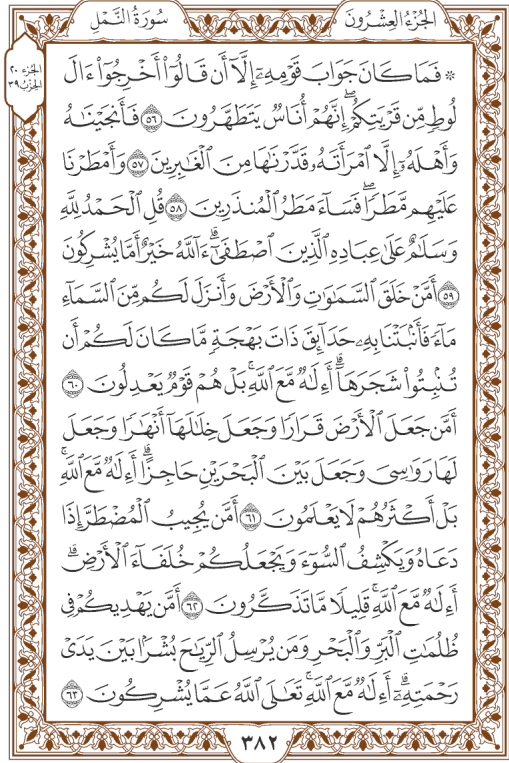 الجُزْءُ العِشْرُونَ
سُورَةُ النَّمْلِ
الجزء ٢٠
الحزب ٣٩
۞ فَمَا كَانَ جَوَابَ قَوْمِهِۦٓ إِلَّآ أَن قَالُوٓا۟ أَخْرِجُوٓا۟ ءَالَ
لُوطٍ مِّن قَرْيَتِكُمْ ۖ إِنَّهُمْ أُنَاسٌ يَتَطَهَّرُونَ ٥٦ فَأَنجَيْنَـٰهُ
وَأَهْلَهُۥٓ إِلَّا ٱمْرَأَتَهُۥ قَدَّرْنَـٰهَا مِنَ ٱلْغَـٰبِرِينَ ٥٧ وَأَمْطَرْنَا
عَلَيْهِم مَّطَرًا ۖ فَسَآءَ مَطَرُ ٱلْمُنذَرِينَ ٥٨ قُلِ ٱلْحَمْدُ لِلَّهِ
وَسَلَـٰمٌ عَلَىٰ عِبَادِهِ ٱلَّذِينَ ٱصْطَفَىٰٓ ۗ ءَآللَّهُ خَيْرٌ أَمَّا يُشْرِكُونَ
٥٩ أَمَّنْ خَلَقَ ٱلسَّمَـٰوَٰتِ وَٱلْأَرْضَ وَأَنزَلَ لَكُم مِّنَ ٱلسَّمَآءِ
مَآءً فَأَنۢبَتْنَا بِهِۦ حَدَآئِقَ ذَاتَ بَهْجَةٍ مَّا كَانَ لَكُمْ أَن
تُنۢبِتُوا۟ شَجَرَهَآ ۗ أَءِلَـٰهٌ مَّعَ ٱللَّهِ ۚ بَلْ هُمْ قَوْمٌ يَعْدِلُونَ ٦٠
أَمَّن جَعَلَ ٱلْأَرْضَ قَرَارًا وَجَعَلَ خِلَـٰلَهَآ أَنْهَـٰرًا وَجَعَلَ
لَهَا رَوَٰسِىَ وَجَعَلَ بَيْنَ ٱلْبَحْرَيْنِ حَاجِزًا ۗ أَءِلَـٰهٌ مَّعَ ٱللَّهِ ۚ
بَلْ أَكْثَرُهُمْ لَا يَعْلَمُونَ ٦١ أَمَّن يُجِيبُ ٱلْمُضْطَرَّ إِذَا
دَعَاهُ وَيَكْشِفُ ٱلسُّوٓءَ وَيَجْعَلُكُمْ خُلَفَآءَ ٱلْأَرْضِ ۗ
أَءِلَـٰهٌ مَّعَ ٱللَّهِ ۚ قَلِيلًا مَّا تَذَكَّرُونَ ٦٢ أَمَّن يَهْدِيكُمْ فِى
ظُلُمَـٰتِ ٱلْبَرِّ وَٱلْبَحْرِ وَمَن يُرْسِلُ ٱلرِّيَـٰحَ بُشْرًۢا بَيْنَ يَدَىْ
رَحْمَتِهِۦٓ ۗ أَءِلَـٰهٌ مَّعَ ٱللَّهِ ۚ تَعَـٰلَى ٱللَّهُ عَمَّا يُشْرِكُونَ ٦٣
٣٨٢